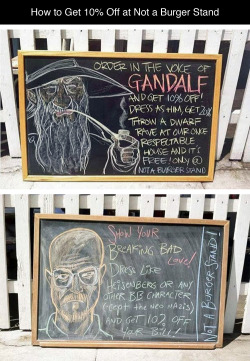 How to Get 10% Off at Not a Burger Stand
ORDER IN THE VOICE OF
GANDALF
AND GET 10% OFF!
DRESS AS HIM, GET 20%
THROW A DWARF
RAVE AT OUR ONCE
RESPECTABLE
HOUSE AND IT'S
FREE! ONLY @
NOT A BURGER STAND
SHOW YOUR
BREAKING BAD
Love!
DRESS LIKE
HEISENBERG OR ANY
OTHER BB CHARACTER
(except the neo nazis)
AND GET 10% OFF
YOUR BILL!
NOT A BURGER STAND!